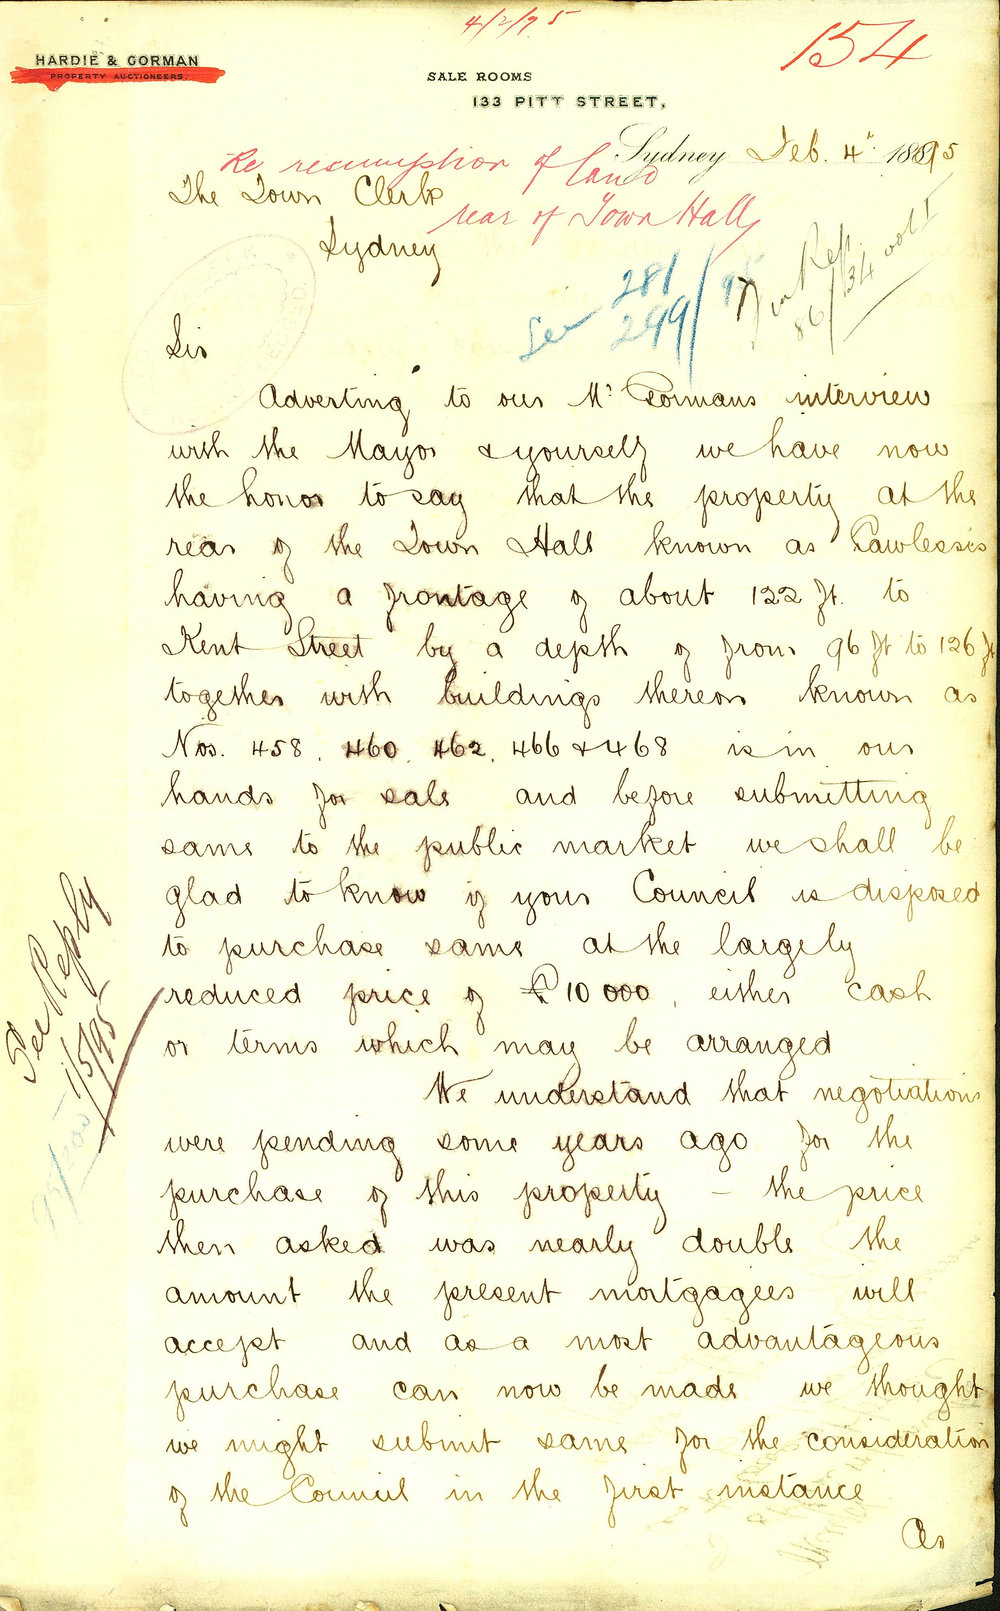 4/2/95
154
HARDIE & GORMAN
PROPERTY AUCTIONEERS.
SALE ROOMS
133 PITT STREET,
Sydney Feb. 4th 1895
Re resumption of land
rear of Town Hall
The Town Clerk
Sydney
See 281
299/95
86/134 vol I
Sir
Adverting to our Mr Gormans interview
with the Mayor & yourself we have now
the honor to say that the property at the
rear of the Town Hall known as Pawlesses
having a frontage of about 122 ft. to
Kent Street by a depth of from 96 ft to 126 ft
together with buildings thereon known as
Nos. 458, 460, 462, 466 & 468 is in our
hands for sale and before submitting
same to the public market we shall be
glad to know if your Council is disposed
to purchase same at the largely
reduced price of £10 000, either cash
or terms which may be arranged
We understand that negotiations
were pending some years ago for the
purchase of this property – the price
then asked was nearly double the
amount the present mortgagees will
accept and as a most advantageous
purchase can now be made we thought
we might submit same for the consideration
of the Council in the first instance
As
See Reply
1/5/95